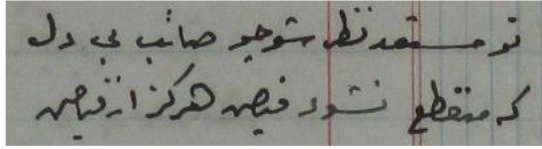 تو مستعد نظر شو چو صائب بی دل
که منقطع نشود فیض هرگز از فیاض